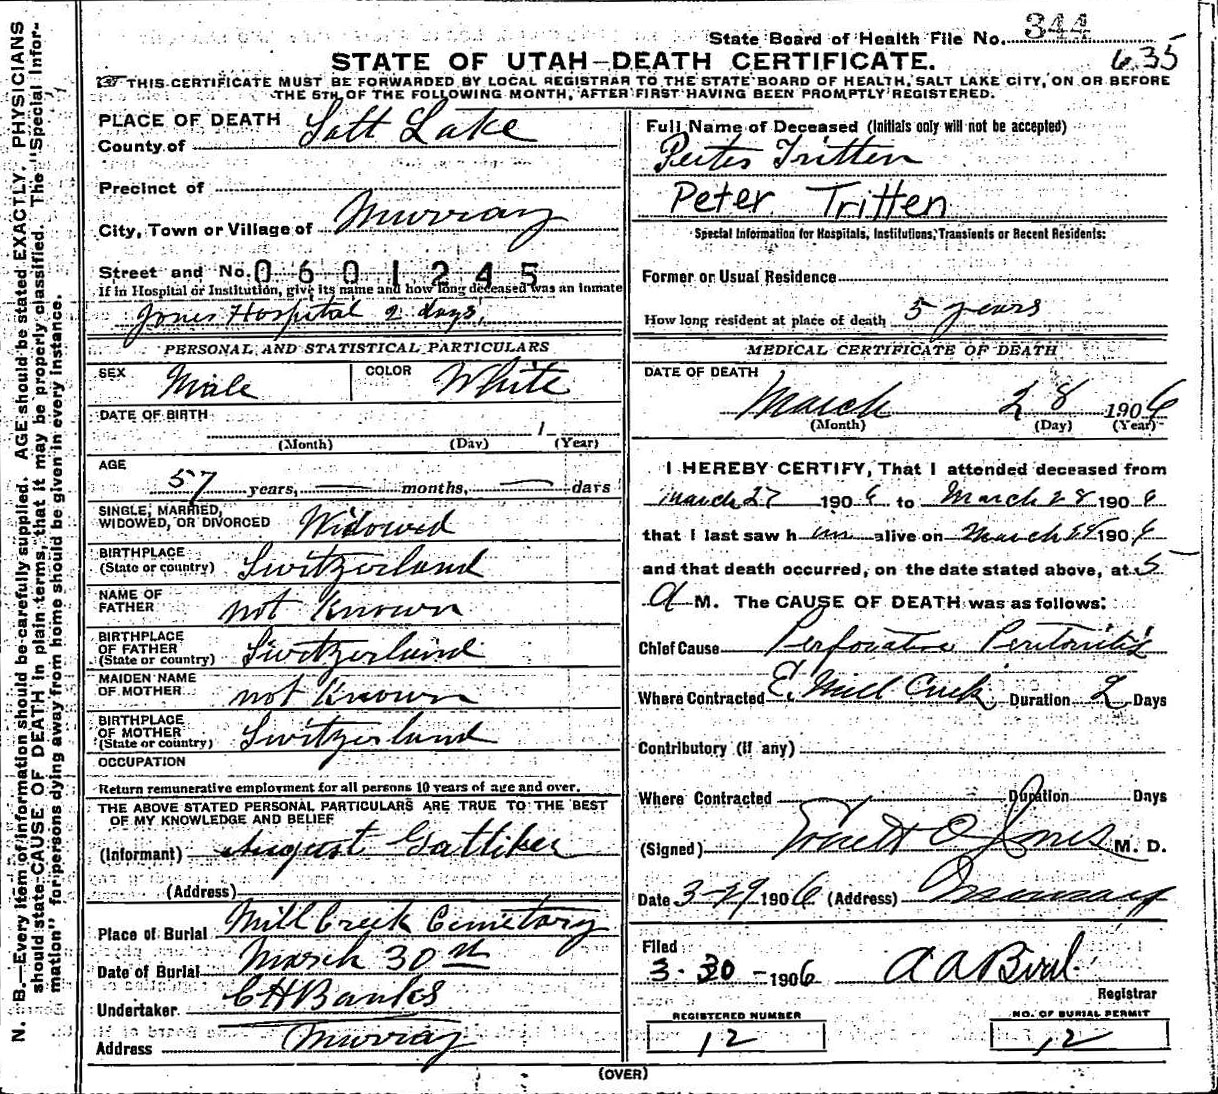 State Board of Health File No. 344
STATE OF UTAH—DEATH CERTIFICATE. 635
THIS CERTIFICATE MUST BE FORWARDED BY LOCAL REGISTRAR TO THE STATE BOARD OF HEALTH, SALT LAKE CITY, ON OR BEFORE
THE 5TH OF THE FOLLOWING MONTH, AFTER FIRST HAVING BEEN PROMPTLY REGISTERED.
N. B.—Every item of information should be carefully supplied. AGE should be stated EXACTLY. PHYSICIANS
should state CAUSE OF DEATH in plain terms, that it may be properly classified. The "Special Infor-
mation" for persons dying away from home should be given in every instance.
PLACE OF DEATH
County of Salt Lake
Precinct of
City, Town or Village of Murray
Street and No. 0601245
If in Hospital or Institution, give its name and how long deceased was an inmate
Jones Hospital 2 days,
PERSONAL AND STATISTICAL PARTICULARS
SEX Male COLOR White
DATE OF BIRTH
1
(Month) (Day) (Year)
AGE
57 years, — months, — days
SINGLE, MARRIED,
WIDOWED, OR DIVORCED Widowed
BIRTHPLACE
(State or country) Switzerland
NAME OF
FATHER not Known
BIRTHPLACE
OF FATHER
(State or country) Switzerland
MAIDEN NAME
OF MOTHER not Known
BIRTHPLACE
OF MOTHER
(State or country) Switzerland
OCCUPATION
Return remunerative employment for all persons 10 years of age and over.
THE ABOVE STATED PERSONAL PARTICULARS ARE TRUE TO THE BEST
OF MY KNOWLEDGE AND BELIEF
(Informant) August Gattiker
(Address)
Place of Burial Mill Creek Cemetary
Date of Burial March 30th
Undertaker C H Banks
Address Murray
Full Name of Deceased (Initials only will not be accepted)
Peter Tritten
Peter Tritten
Special Information for Hospitals, Institutions, Transients or Recent Residents:
Former or Usual Residence
How long resident at place of death 5 years
MEDICAL CERTIFICATE OF DEATH
DATE OF DEATH
March 28 1906
(Month) (Day) (Year)
I HEREBY CERTIFY, That I attended deceased from
March 27 1906 to March 28 1906
that I last saw him alive on March 28 1906
and that death occurred, on the date stated above, at 5
A M. The CAUSE OF DEATH was as follows:
Chief Cause Perforative Peritonitis
Where Contracted E. Mill Creek Duration 2 Days
Contributory (if any)
Where Contracted Duration Days
(Signed) O Jones M. D.
Date 3-29 1906 (Address) Murray
Filed
3-30-1906 A A Bird.
Registrar
REGISTERED NUMBER
12
NO. OF BURIAL PERMIT
12
(OVER)